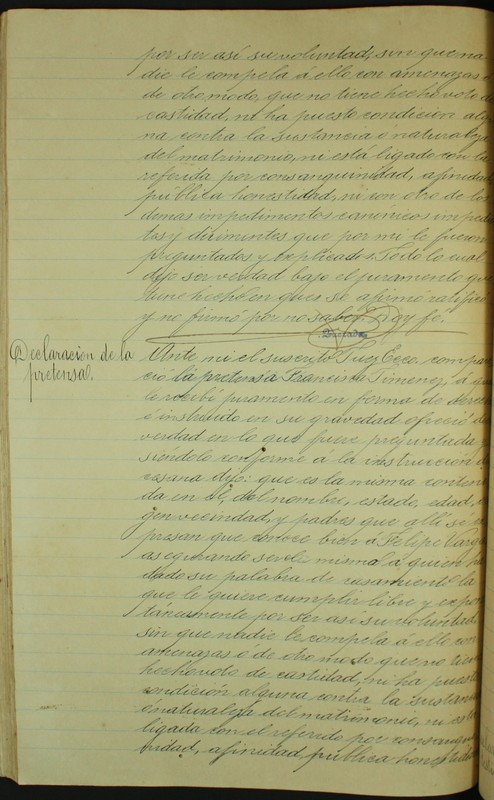 por ser así su voluntad, sin que na
die le compela á ello con amenazas ó
de otro modo, que no tiene hecho voto de
castidad, ni ha puesto condicion algu
na contra la sustancia ó naturaleza
del matrimonio, ni está ligado con la
referida por consanguinidad, afinidad
pública honestidad, ni con otro de los
demas impedimentos canonicos impedien
tes y dirimentes que por mi le fueron
preguntados y explicados. Todo lo cual
dijo ser verdad bajo el juramento que
tiene hecho en que se afirmó ratificó
y no firmó por no saber. Doy fe.
Declaracion de la
pretensa.
Ante mi el suscrito Juez Ecco. compare
ció la pretensa Francisca Jimenez, á quien
le recibí juramento en forma de derecho
é instruido en su gravedad ofreció decir
verdad en lo que fuere preguntada y
siendolo conforme á la instruccion
dijo: que es la misma conteni
da en el, del nombre, estado, edad, ori
gen vecindad, y padres que allí se ex
presan que conoce bien á Felipe Vargas
asegurando ser el mismo á quien ha
dado su palabra de casamiento la
que le quiere cumplir libre y espon
táneamente por ser así su voluntad
sin que nadie le compela á ello con
amenazas ó de otro modo que no tiene
hecho voto de castidad, ni ha puesto
condición alguna contra la sustancia
ó naturaleza del matrimonio, ni está
ligada con el referido por consangui
nidad, afinidad pública honestidad